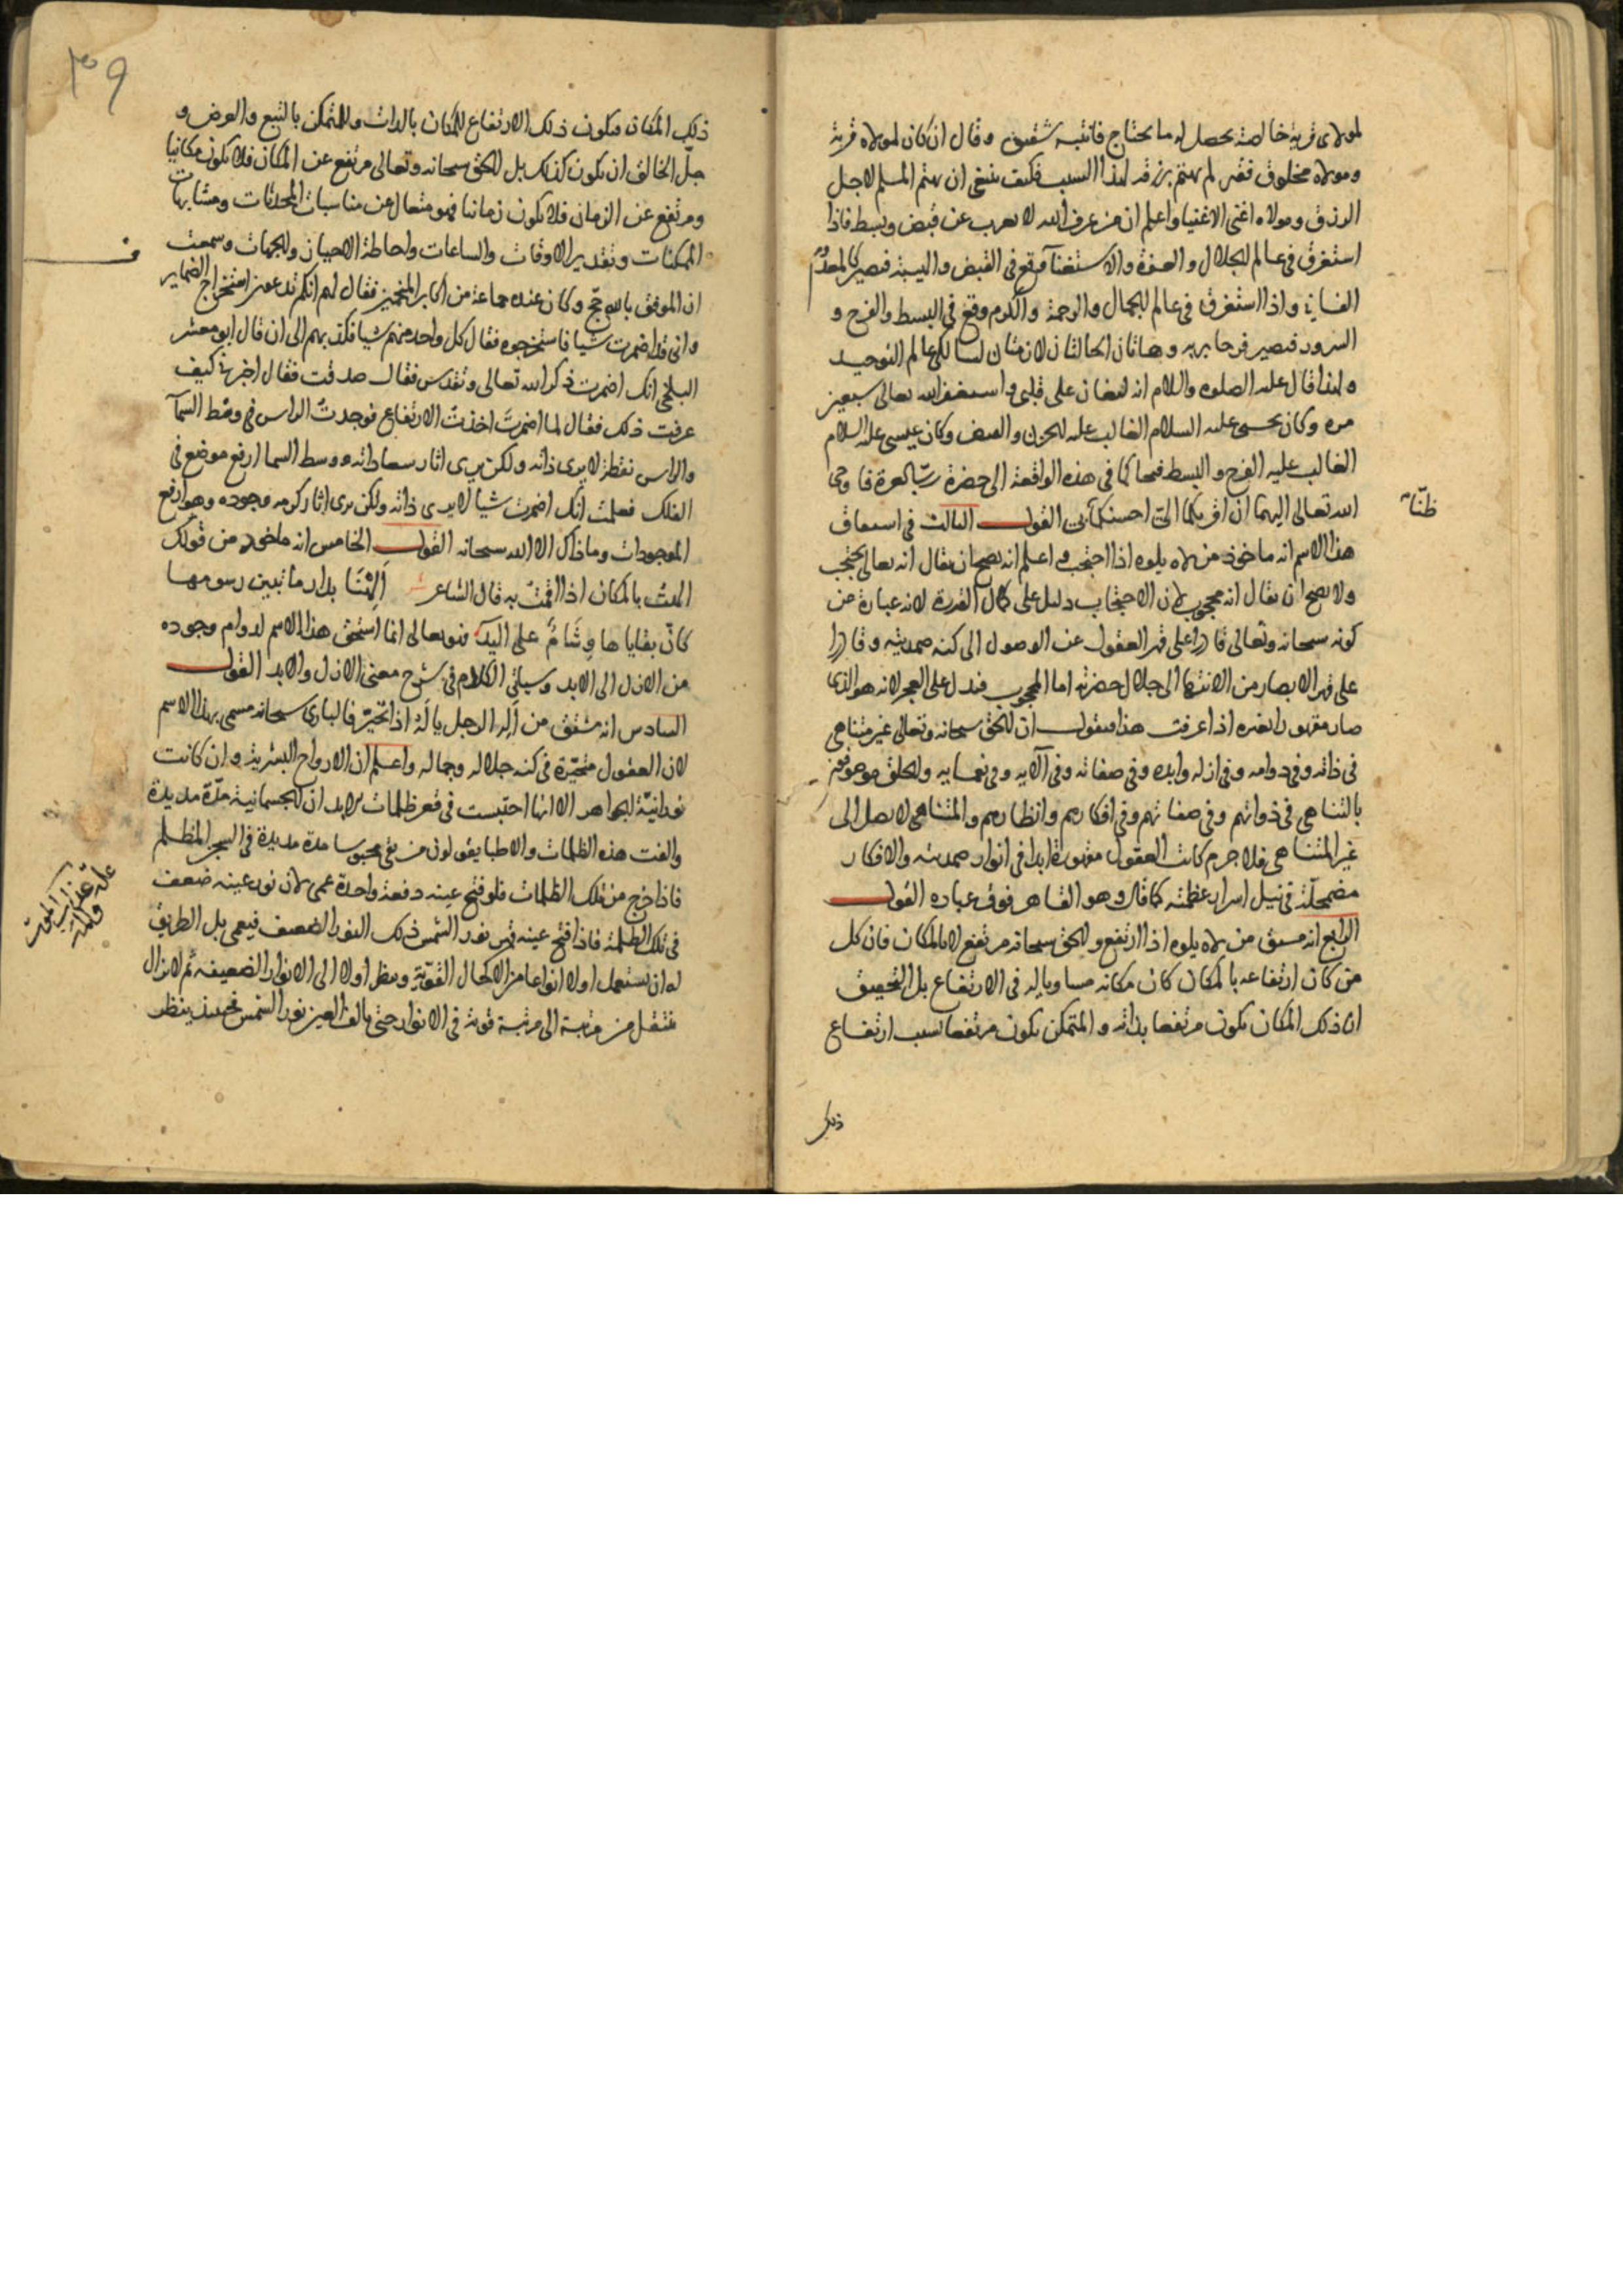 لمولاى قرية خالصة يحصل له ما يحتاج فانتبه شقيق وقال ان كان لمولاه قرية
ومولاه مخلوق فقير لم يهتم برزقه لهذا السبب فكيف ينبغى ان يهتم المسلم لاجل
الرزق ومولاه اغنى الاغنيا واعلم ان من عرف الله لا يعرب عن قبض وبسط فاذا
استغرق فى عالم الجلال والعزة والاستغنآ وقع فى القبض والهيبة فيصير كالمعدوم
الفانى واذا استغرق فى عالم الجمال والرحمة والكرم وقع فى البسط والفرح و
السرور فيصير فرحا بربه وهاتان الحالتان لازمتان لسالكى عالم التوحيد
ولهذا قال عليه الصلوه والسلام انه ليغان على قلبى واستغفر الله تعالى سبعين
مره وكان يحيى عليه السلام الغالب عليه الحزن والقبض وكان عيسى عليه السلام
الغالب عليه الفرح والبسط فتحاكما فى هذه الواقعة الى حضرة رب العزة فاوحى
الله تعالى اليهما ان اقربكما الىّ احسنكما بى القول الثالث فى اشتقاق
ظنّا
هذا الاسم انه ماخوذ من لاه يلوه اذا احتجب واعلم انه يصح ان يقال انه تعالى يحتجب
ولا يصح ان يقال انه محجوب لان الاحتجاب دليل على كمال القدرة لانه عبارة عن
كونه سبحانه وتعالى قادرا على قهر العقول عن الوصول الى كنه صمديته وقادرا
على قهر الابصار من الانتها الى جلال حضرته اما المحجوب فيدل على العجز لانه هو الذى
صار مقهورا لغيره اذا عرفت هذا فنقول ان الحق سبحانه وتعالى غير متناهى
فى ذاته وفى دوامه وفى ازله وابده وفى صفاته وفى آلايه وفى نعمايه والخلق موصوفون
بالتناهى فى ذواتهم وفى صفاتهم وفى افكارهم وانظارهم والمتناهى لا يصل الى
غير المتناهى فلا جرم كانت العقول مقهورة ابدا فى انوار صمديته والافكار
مضمحلّة فى نيل اسرار عظمته كما قال وهو القاهر فوق عباده القول
الرابع انه مشتق من لاه يلوه اذا ارتفع والحق سبحانه مرتفع لا بالمكان فان كل
من كان ارتفاعه بالمكان كان مكانه مساويا له فى الارتفاع بل التحقيق
ان ذلك المكان يكون مرتفعا بذاته والمتمكن يكون مرتفعا بسبب ارتفاع
ذلك
٣٩
ذلك المكان فيكون ذلك الارتفاع للمكان بالذات وللمتمكن بالتبع والعرض و
جلّ الخالق ان يكون كذلك بل الحق سبحانه وتعالى مرتفع عن المكان فلا يكون مكانيا
ومرتفع عن الزمان فلا يكون زمانيا فهو متعال عن مناسبات المحدثات ومشابهات
الممكنات وتقدير الاوقات والساعات واحاطة الاحيان والجهات وسمعت
ان الموفق بالله حجّ وكان عنده جماعة من اكابر المنجمين فقال لهم انكم تدعون استخراج الضماير
وانى قد اضمرت شيا فاستخرجوه فقال كل واحد منهم شيا فكذبهم الى ان قال ابو معشر
البلخى انك اضمرت ذكر الله تعالى وتقدس فقال صدقت فقال اخبرنى كيف
عرفت ذلك فقال لما اضمرتَ اخذتُ الارتفاع فوجدتُ الراس فى وسط السمآ
والراس نقطة لا يرى ذاته ولكن يرى اثار سعاداته ووسط السما ارفع موضع فى
الفلك فعلمت انك اضمرت شيا لا يرى ذاته ولكن يرى اثار كرمه وجوده وهو ارفع
الموجودات وما ذاك الا الله سبحانه القول الخامس انه ماخوذ من قولك
الهتُ بالمكان اذا اقمتَ به قال الشاعر اَلِهْنَا بدار ما تبين رسومها
كانّ بقاياها وِشَامٌ على اليد فهو تعالى انما استحق هذا الاسم لدوام وجوده
من الازل الى الابد وسياتى الكلام فى شرح معنى الازل والابد القول
السادس انه مشتق من اَلِهَ الرجل يالَهُ اذا تحيّر فالبارى سبحانه مسمى بهذا الاسم
لان العقول متحيّرة فى كنه جلاله وجماله واعلم ان الارواح البشرية وان كانت
نورانيّة الجواهر الا انها احتبست فى قعر ظلمات الابدان الجسمانية مدّة مديدة
والفت هذه الظلمات والاطبا يقولون من بقى محبوسا مدة مديدة فى السجن المظلم
فاذا خرج من تلك الظلمات فلو فتح عينه دفعة واحدة عمى لان نور عينه ضعف
فى تلك الظلمة فاذا فتح عينه قهر نور الشمس ذلك النور الضعيف فيعمى بل الطريق
له ان يستعمل اولا انواعا من الاكحال القويّة وينظر اولا الى الانوار الضعيفة ثم لا يزال
ينتقل من مرتبة الى مرتبة قوية فى الانوار حتى يالف العين نور الشمس فحينئذ ينظر